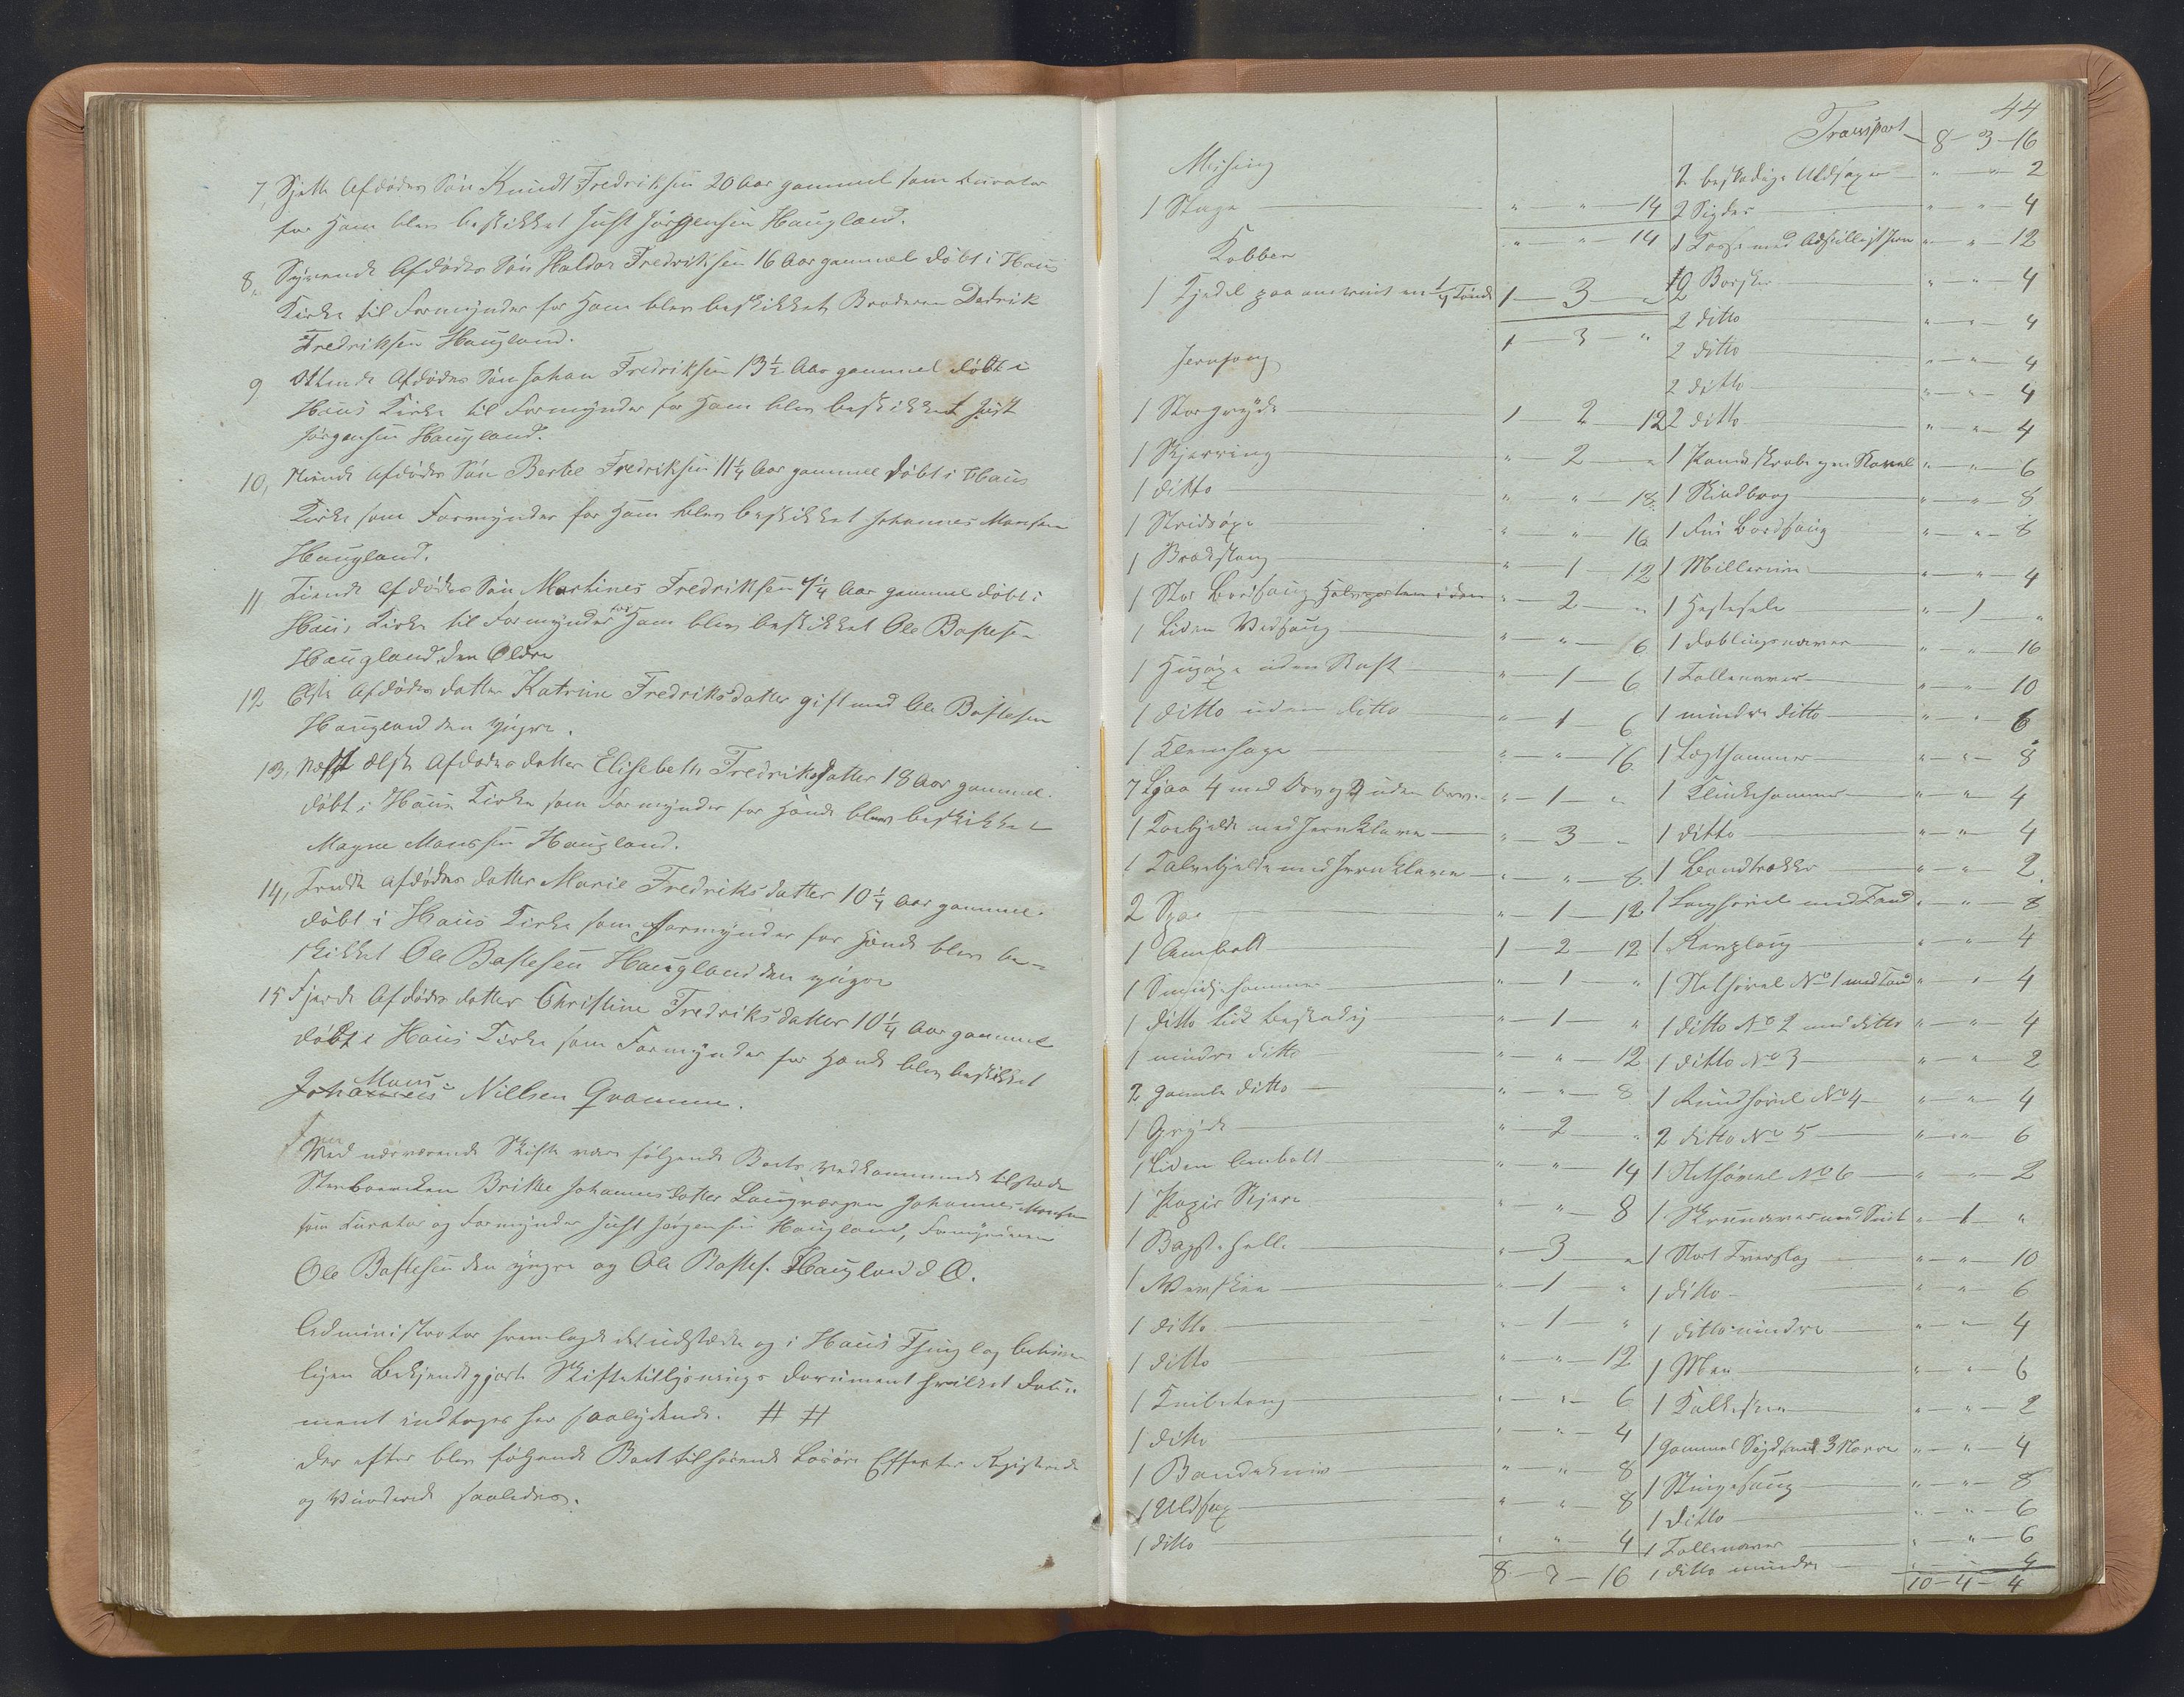 7, Sjette Afdødes Søn Knudt Fredriksen 20 Aar gammel som Curator
for Ham blev beskikket Just Jørgensen Haugland.
8, Syvende Afdødes Søn Haldor Fredriksen 16 Aar gammel døbt i Haus
Kirke til Formynder for Ham blev beskikket Broderen Dedrik
Fredriksen Haugland.
9 Ottende Afdødes Søn Johan Fredriksen 13 1/2 Aar gammel døbt i
Haus Kirke til Formynder for Ham blev beskikket Just
Jørgensen Haugland.
10, Niende Afdødes Søn Bertel Fredriksen 11 1/4 Aar gammel døbt i Haus
Kirke som Formynder for Ham blev beskikket Johannes Monsen
Haugland.
11 Tiende Afdødes Søn Martines Fredriksen 4 1/4 Aar gammel døbt i
Haus Kirke til Formynder for Ham blev beskikket Ole Bastese-
Haugland den Eldre
12 Elste Afdødes datter Katrine Fredriksdatter gift med Ole Bastesen
Haugland den yngre.
13, Næst elste Afdødes datter Elisebeth Fredriksdatter 18 Aar gammel.
døbt i Haus Kirke som Formynder for Hende blev beskikket
Magne Monssen Haugland.
14, Tredie Afdødes datter Marie Fredriksdatter 10 1/4 Aar gammel.
døbt i Haus Kirke som Formynder for Hende blev be-
skikket Ole Bastesen Haugland den yngre
15 Fjerde Afdødes datter Christine Fredriksdatter 10 1/4 Aar gammel
døbt i Haus Kirke som Formynder for Hende blev beskikket
Johannes Mons Nillsen Gramme.
Ved nærværende Skifte vare følgende Boets vedkommende tilstede
Sterboenken Britte Johannesdatter Laugværgen Johannes Monsen
som Curator og Formynder Just Jørgensen Haugland, Formynderen
Ole Bastesen den yngre og Ole Bastes. Haugland d Æ.
Administrator fremlagde det udstædte og i Haus Thinglag behøve-
ligen Bekjendtgjorte Skiftetilljsnings Document hvilket Docu
ment indtages her saalydende. # #
der efter blev følgende Boet tilhørende Løsøre Effecter Registrerede
og Vurderede saaledes.
44
Messing
1 Stage " — " — 14
" — " — 14
Kobber
1 Kjedel paa omtrent en 1/4 Tønde 1 — 3 — "
1 — 3 — "
Jernfang
1 Storgryde 1 — 2 — 12
1 Skjerring " — 2 — "
1 ditto " — " — 18
1 Stridøxe " — " — 16
1 Brækstang " — 1 — 12
1 Stor Bordsaug " — 2 — "
1 Liden Vedsaug " — " — 6
1 Hugøxe uden Skaft " — 1 — 6
1 ditto uden ditto " — 1 — 6
1 Klemsage " — " — 16
7 Ljaa 4 med Orv og 3 uden Orv " — 1 — "
1 Koebjelde med Jernklave " — 3 — "
1 Kalvebjelde med Jernklave " — " — 8
2 Spae " — 1 — 12
1 Ambolt 1 — 2 — 12
1 Smidjehammer " — 1 — "
1 ditto lidt beskadig " — 1 — "
1 mindre ditto " — " — 12
2 gamle ditto " — " — 8
1 Gryde " — 2 — "
1 Liden Ambolt " — " — 14
1 Papir Skjere " — " — 8
1 Bagstehelle " — 3 — "
1 " — 1 — "
1 ditto " — 1 — "
1 ditto " — " — 12
1 Knibetang " — " — 6
1 ditto " — " — 4
1 Baandakniv " — " — 8
1 Uldsax " — " — 8
1 ditto " — " — 4
8 — 3 — 16
Transport 8 — 3 — 16
2 beskadige Uldsaxer " — " — 2
2 Sigder " — " — 4
1 Kasse med Adskilligt Jern " — " — 12
2 " — " — 4
2 ditto " — " — 4
2 ditto " — " — 4
2 ditto " — " — 4
2 ditto " — " — 4
1 " — " — 6
1 " — " — 8
1 Fin Bordsaug " — " — 8
1 " — " — 4
1 Hestesele " — 1 — "
1 " — " — 16
1 Tollenaver " — " — 10
1 mindre ditto " — " — 6
1 Lægthammer " — " — 8
1 Klinkehammer " — " — 4
1 ditto " — " — 4
1 Baandtrækker " — " — 2
1 Langhøvel med Tand " — " — 8
1 " — " — 4
1 Slethøvel No 1 med Tand " — " — 4
1 ditto No 2 med ditto " — " — 4
1 ditto No 3 " — " — 2
1 Rundhøvel No 4 " — " — 4
2 ditto No 5 " — " — 6
1 Slethøvel No 6 " — " — 2
1 " — 1 — "
1 Stort " — " — 10
1 ditto " — " — 6
1 ditto mindre " — " — 4
1 " — " — 6
1 " — " — 2
1 gammel Sigd med 3 " — " — 4
1 Stingsaug " — " — 8
1 ditto " — " — 6
1 Tollenaver " — " — 6
1 ditto mindre " — " — 4
10 — 4 — 4